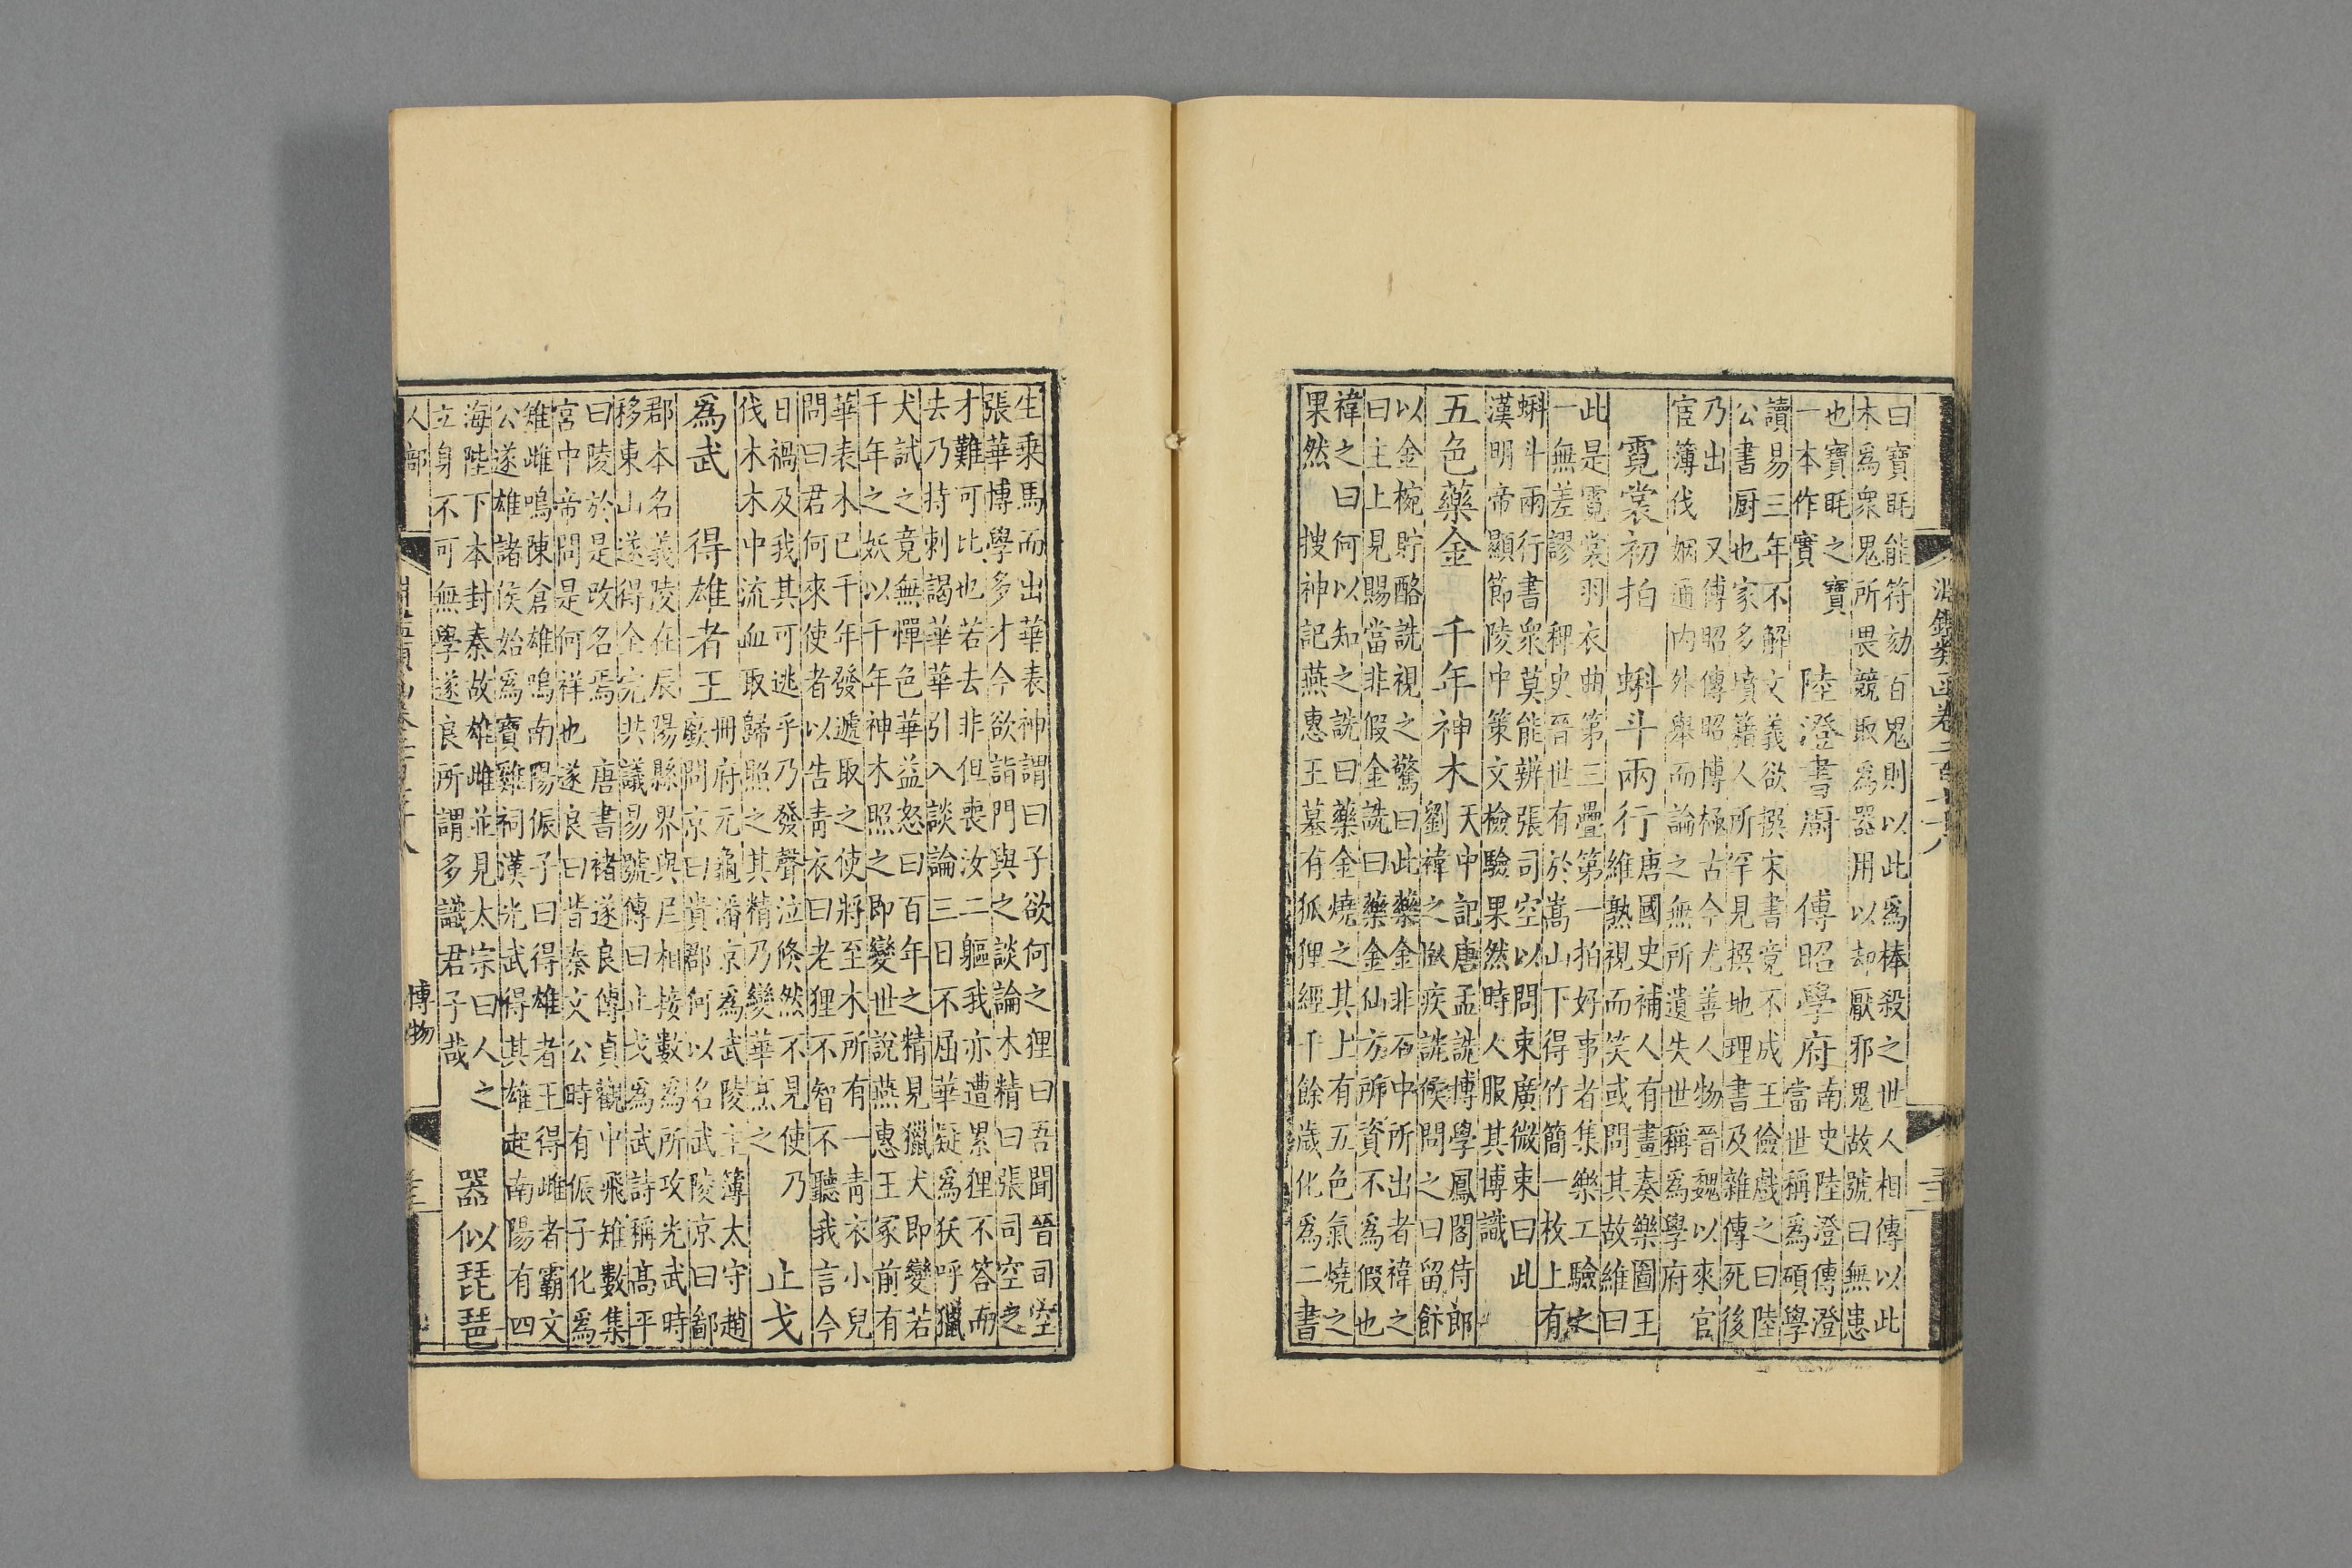 淵鑑類函卷三百
曰寶眊能符劾百鬼則以此爲棒殺之世人相傳以此
木爲衆鬼所畏競取爲器用以却厭邪鬼故號曰無患
也寶眊之寶
一本作實
陸澄書厨 傅昭學府
南史陸澄傳澄
當世稱爲碩學
讀易三年不解文義欲撰宋書竟不成王儉戲之曰陸
公書厨也家多墳籍人所罕見撰地理書及雜傳死後
乃出 又傅昭傳昭博極古今尤善人物晉魏以來官
宦簿伐姻通内外舉而論之無所遺失世稱爲學府
霓裳初拍 蝌斗兩行
唐國史補人有畫奏樂圖王
維熟視而笑或問其故維曰
此是霓裳羽衣曲第三疊第一拍好事者集樂工驗之
一無差謬 稗史晉世有於嵩山下得竹簡一枚上有
蝌斗兩行書衆莫能辨張司空以問束廣微束曰此
漢明帝顯節陵中策文檢驗果然時人服其博識
五色藥金 千年神木
天中記唐孟詵博學鳳閣侍郎
劉禕之㣲疾詵候問之曰留飮
以金椀貯酪詵視之驚曰此藥金非石中所出者禕之
曰主上見賜當非假金詵曰藥金仙方所資不爲假也
禕之曰何以知之詵曰藥金燒之其上有五色氣燒之
果然 搜神記燕惠王墓有狐狸經千餘歲化爲二書
生乘馬而出華表神謂曰子欲何之狸曰吾聞晉司空
張華博學多才今欲詣門與之談論木精曰張司空之
才難可比也若去非但喪汝二軀我亦遭累狸不答而
去乃持刺謁華華引入談論三日不屈華疑爲妖呼獵
犬試之竟無憚色華益怒曰百年之精見獵犬即變若
千年之妖以千年神木照之即變世說燕惠王冢前有
華表木已千年發遞取之使將至木所有一青衣小兒
問曰君何來使者以告青衣曰老狸不智不聽我言今
日禍及我其可逃乎乃發聲泣倐然不見使乃
伐木木中流血取歸照之其精乃變華烹之
止戈
爲武 得雄者王
冊府元龜潘京爲武陵主簿太守趙
廞問京曰貴郡何以名武陵京曰鄙
郡本名義陵在辰陽縣界與尼相接數爲所攻光武時
移東山遂得全完共議易號傳曰止戈爲武詩稱高平
曰陵於是改名焉 唐書褚遂良傳貞觀中飛雉數集
宮中帝問是何祥也遂良曰昔秦文公時有侲子化爲
雉雌鳴陳倉雄鳴南陽侲子曰得雄者王得雌者霸文
公遂雄諸侯始爲寶雞祠漢光武得其雄起南陽有四
海陛下本封秦故雄雌並見太宗曰人之
立身不可無學遂良所謂多識君子哉
器似琵琶
人部 博物